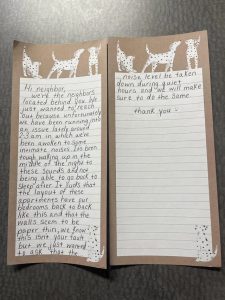 Hi neighbor,
we're the neighbors
located behind you. We
just wanted to reach
out because unfortunately
we have been running into
an issue lately around
2-3am in which we've
been awoken to some
intimate noises. Its been
tough waking up in the
middle of the night to
these sounds and not
being able to go back to
sleep after. It sucks that
the layout of these
apartments have our
bedrooms back to back
like this and that the
walls seem to be
paper thin, we know
this isn't your fault
but we just wanted
to ask that the
noise level be taken
down during quiet
hours and we will make
sure to do the same.
thank you -